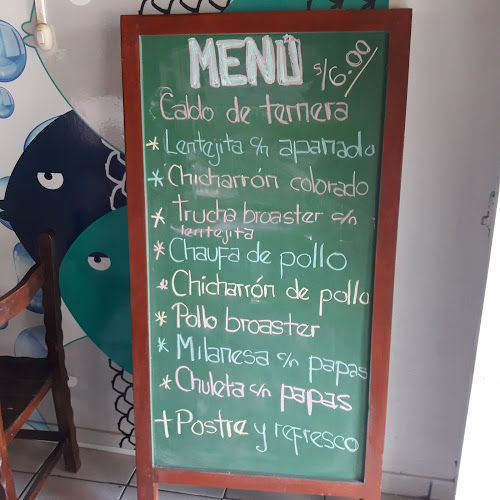 MENÚ s/6.00
Caldo de ternera
* Lentejita c/n apanado
* Chicharrón colorado
* Trucha broaster c/n
lentejita
* Chaufa de pollo
* Chicharrón de pollo
* Pollo broaster
* Milanesa c/n papas
* Chuleta c/n papas
+ Postre y refresco